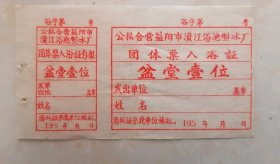 浴字第 号
公私合营益阳市滨江浴池制冰厂
团体票入浴证存根
盆堂壹位
发票单位 盖章
姓名
195 年 月 日
浴字第 号
公私合营益阳市滨江浴池制冰厂
团体票入浴证
盆堂壹位
发出单位 盖章
姓 名
195 年 月 日